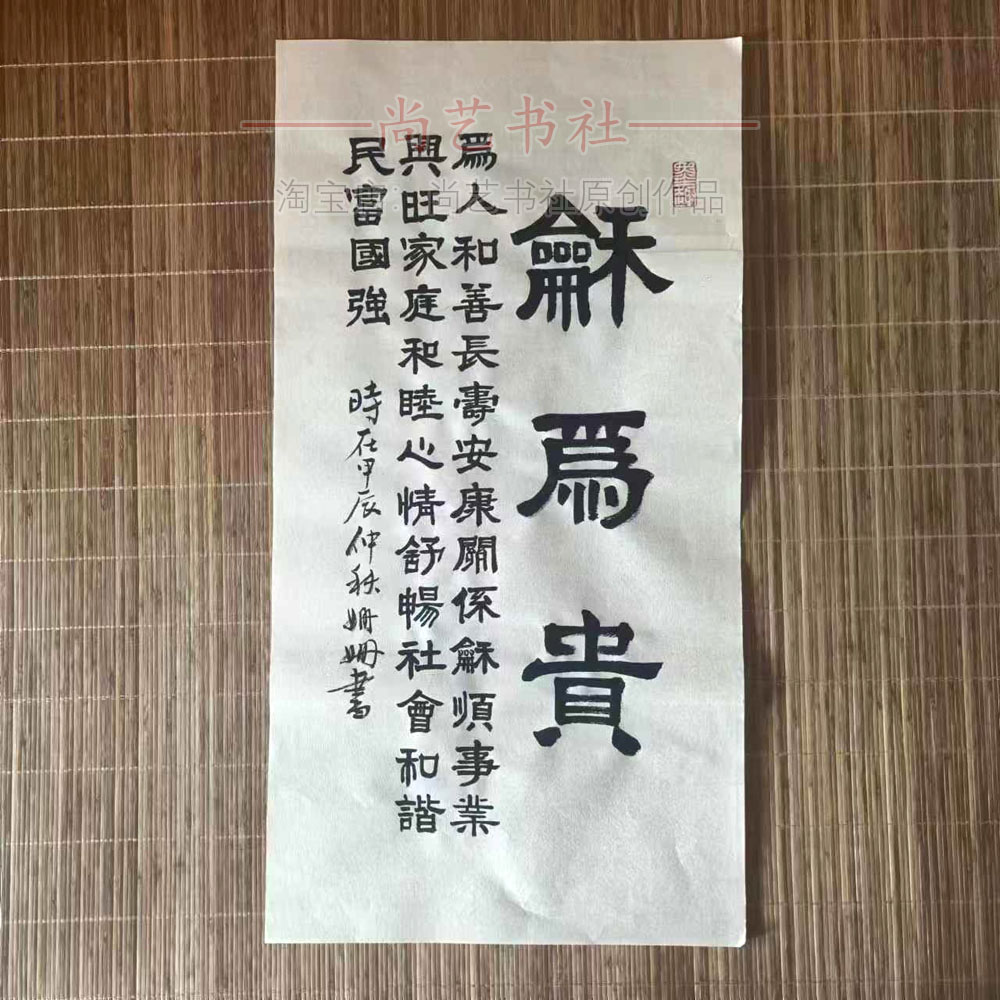 尚艺书社
龢為貴
為人和善長壽安康關係龢順事業
興旺家庭和睦心情舒暢社會和諧
民富國強
時在甲辰仲秋姍姍書
尚艺书社原创作品